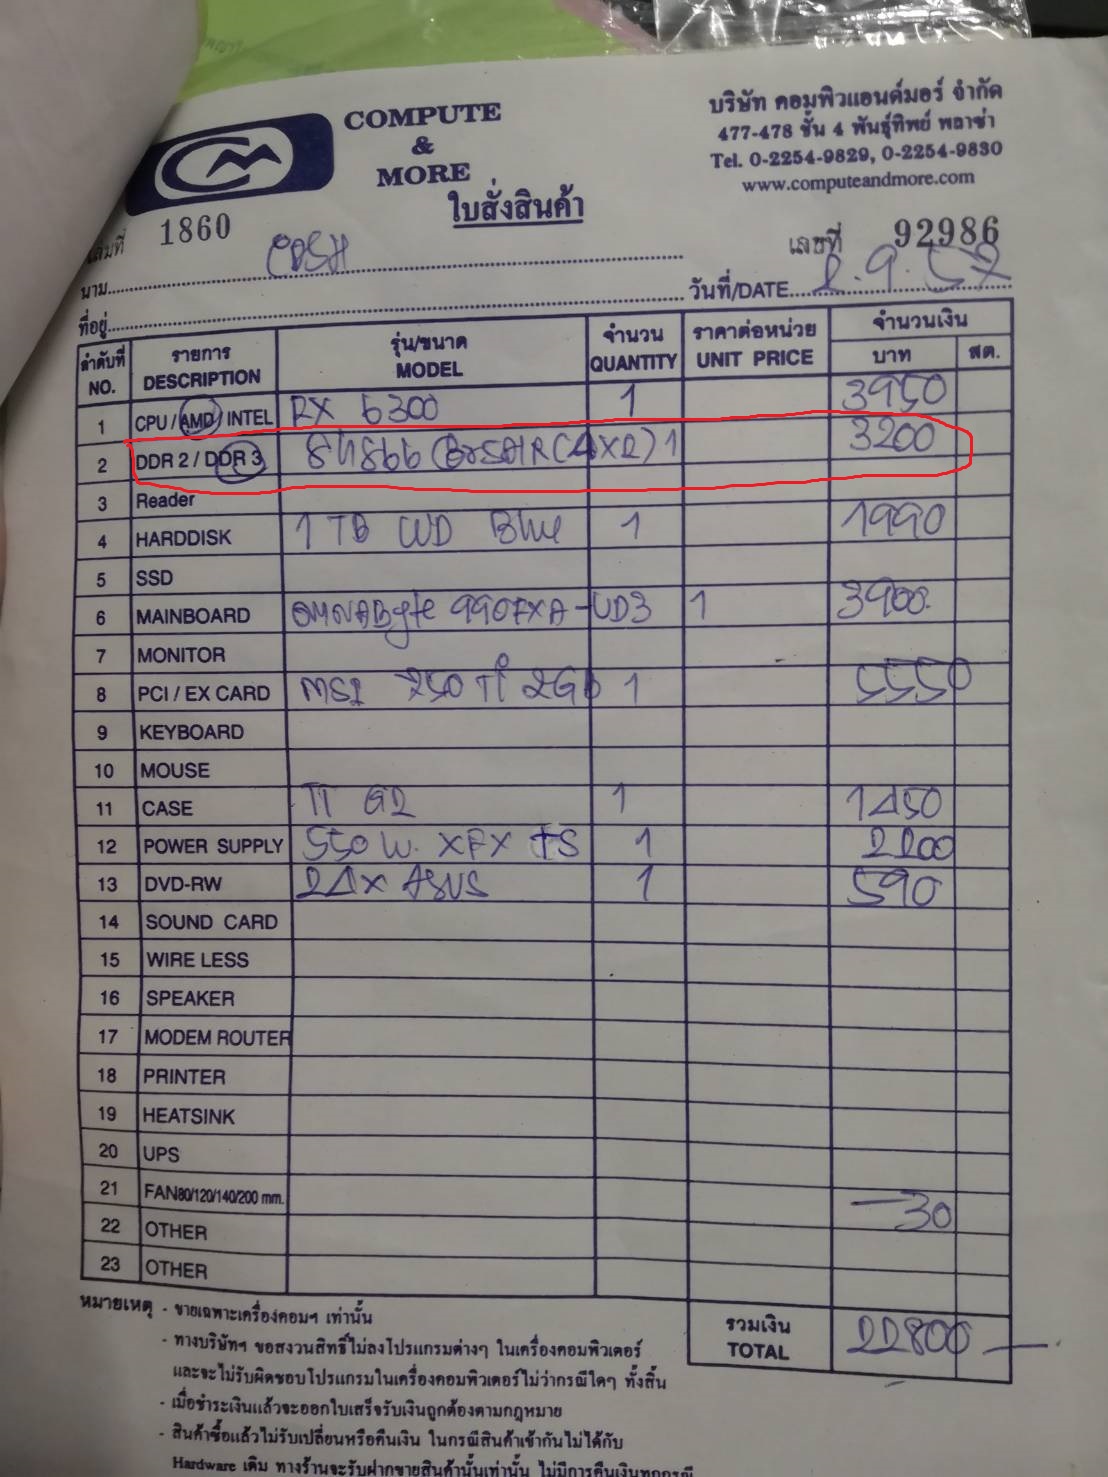 COMPUTE
&
MORE
บริษัท คอมพิวแอนด์มอร์ จำกัด
477-478 ชั้น 4 พันธุ์ทิพย์ พลาซ่า
Tel. 0-2254-9829, 0-2254-9830
www.computeandmore.com
ใบสั่งสินค้า
เล่มที่ 1860
เลขที่ 92986
นาม
วันที่/DATE 2.9.57
ที่อยู่
ลำดับที่ NO. รายการ DESCRIPTION รุ่น/ขนาด MODEL จำนวน QUANTITY ราคาต่อหน่วย UNIT PRICE จำนวนเงิน บาท สต.
1 CPU / AMD / INTEL 6300 1 3950
2 DDR 2 / DDR 3 (4x2) 1 3200
3 Reader
4 HARDDISK 1 TB WD Blue 1 1990
5 SSD
6 MAINBOARD 990FXA-UD3 1 3900
7 MONITOR
8 PCI / EX CARD MSI 750 Ti 2GD 1 5550
9 KEYBOARD
10 MOUSE
11 CASE TT G2 1 1450
12 POWER SUPPLY 550 W. XFX TS 1 2200
13 DVD-RW 24x ASUS 1 590
14 SOUND CARD
15 WIRE LESS
16 SPEAKER
17 MODEM ROUTER
18 PRINTER
19 HEATSINK
20 UPS
21 FAN80/120/140/200 mm. -30
22 OTHER
23 OTHER
รวมเงิน TOTAL 22800
หมายเหตุ - ขายเฉพาะเครื่องคอมฯ เท่านั้น
- ทางบริษัทฯ ขอสงวนสิทธิ์ไม่ลงโปรแกรมต่างๆ ในเครื่องคอมพิวเตอร์
และจะไม่รับผิดชอบโปรแกรมในเครื่องคอมพิวเตอร์ไม่ว่ากรณีใดๆ ทั้งสิ้น
- เมื่อชำระเงินแล้วจะออกใบเสร็จรับเงินถูกต้องตามกฎหมาย
- สินค้าซื้อแล้วไม่รับเปลี่ยนหรือคืนเงิน ในกรณีสินค้าเข้ากันไม่ได้กับ
Hardware เดิม ทางร้านจะรับฝากขายสินค้านั้นเท่านั้น ไม่มีการคืนเงินทุกกรณี